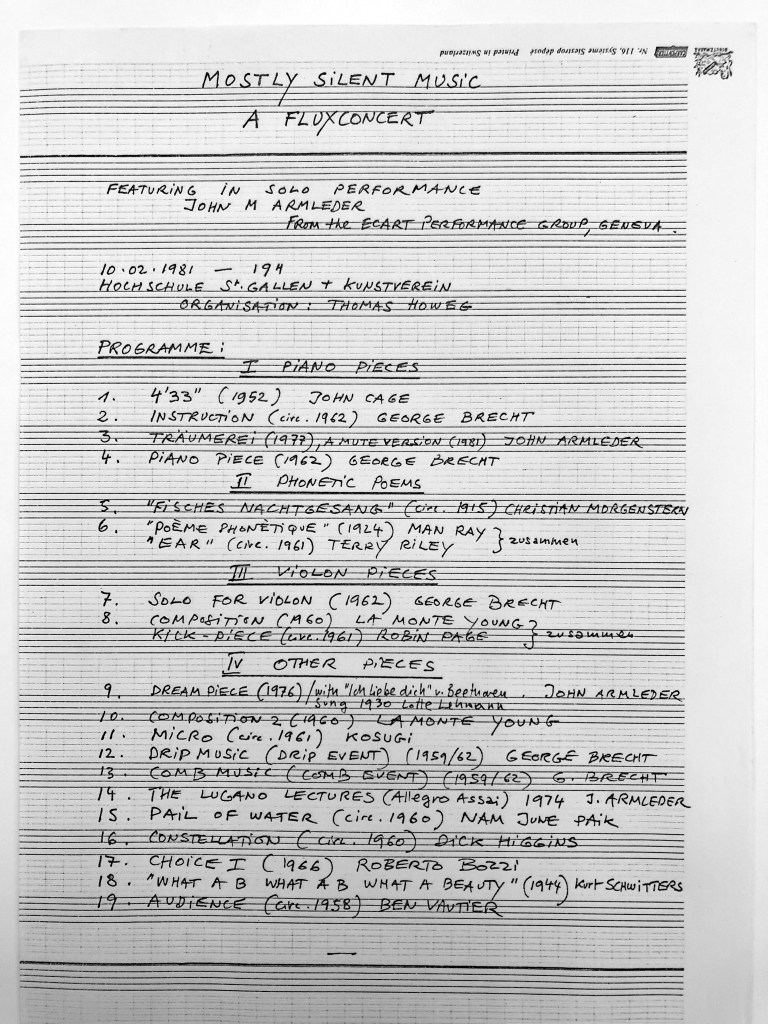 Nr. 116, Système Siestrop déposé Printed in Switzerland
MOSTLY SILENT MUSIC
A FLUXCONCERT
FEATURING IN SOLO PERFORMANCE
JOHN M ARMLEDER
FROM the ECART PERFORMANCE GROUP, GENEVA.
10.02.1981 — 19H
HOCHSCHULE St. GALLEN + KUNSTVEREIN
ORGANISATION: THOMAS HOWEG
PROGRAMME:
I PIANO PIECES
1. 4'33" (1952) JOHN CAGE
2. INSTRUCTION (circ. 1962) GEORGE BRECHT
3. TRÄUMEREI (1977), A MUTE VERSION (1981) JOHN ARMLEDER
4. PIANO PIECE (1962) GEORGE BRECHT
II PHONETIC POEMS
5. "FISCHES NACHTGESANG" (circ. 1915) CHRISTIAN MORGENSTERN
6. "POÈME PHONÉTIQUE" (1924) MAN RAY
"EAR" (circ. 1961) TERRY RILEY } zusammen
III VIOLON PIECES
7. SOLO FOR VIOLON (1962) GEORGE BRECHT
8. COMPOSITION (1960) LA MONTE YOUNG
KICK-PIECE (circ. 1961) ROBIN PAGE } zusammen
IV OTHER PIECES
9. DREAM PIECE (1976) / with "Ich liebe dich" v. Beethoven. JOHN ARMLEDER
sung 1930 Lotte Lehmann
10. COMPOSITION 2 (1960) LA MONTE YOUNG
11. MICRO (circ. 1961) KOSUGI
12. DRIP MUSIC (DRIP EVENT) (1959/62) GEORGE BRECHT
13. COMB MUSIC (COMB EVENT) (1959/62) G. BRECHT
14. THE LUGANO LECTURES (Allegro Assai) 1974 J. ARMLEDER
15. PAIL OF WATER (circ. 1960) NAM JUNE PAIK
16. CONSTELLATION (circ. 1960) DICK HIGGINS
17. CHOICE I (1966) ROBERTO BOZZI
18. "WHAT A B WHAT A B WHAT A BEAUTY" (1944) Kurt SCHWITTERS
19. AUDIENCE (circ. 1958) BEN VAUTIER